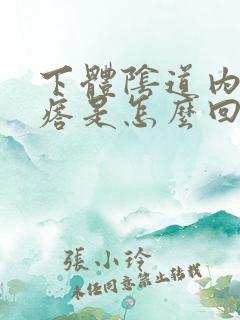 下體陰道內
痞是怎麼回
張小玲
未任同意禁止轉載